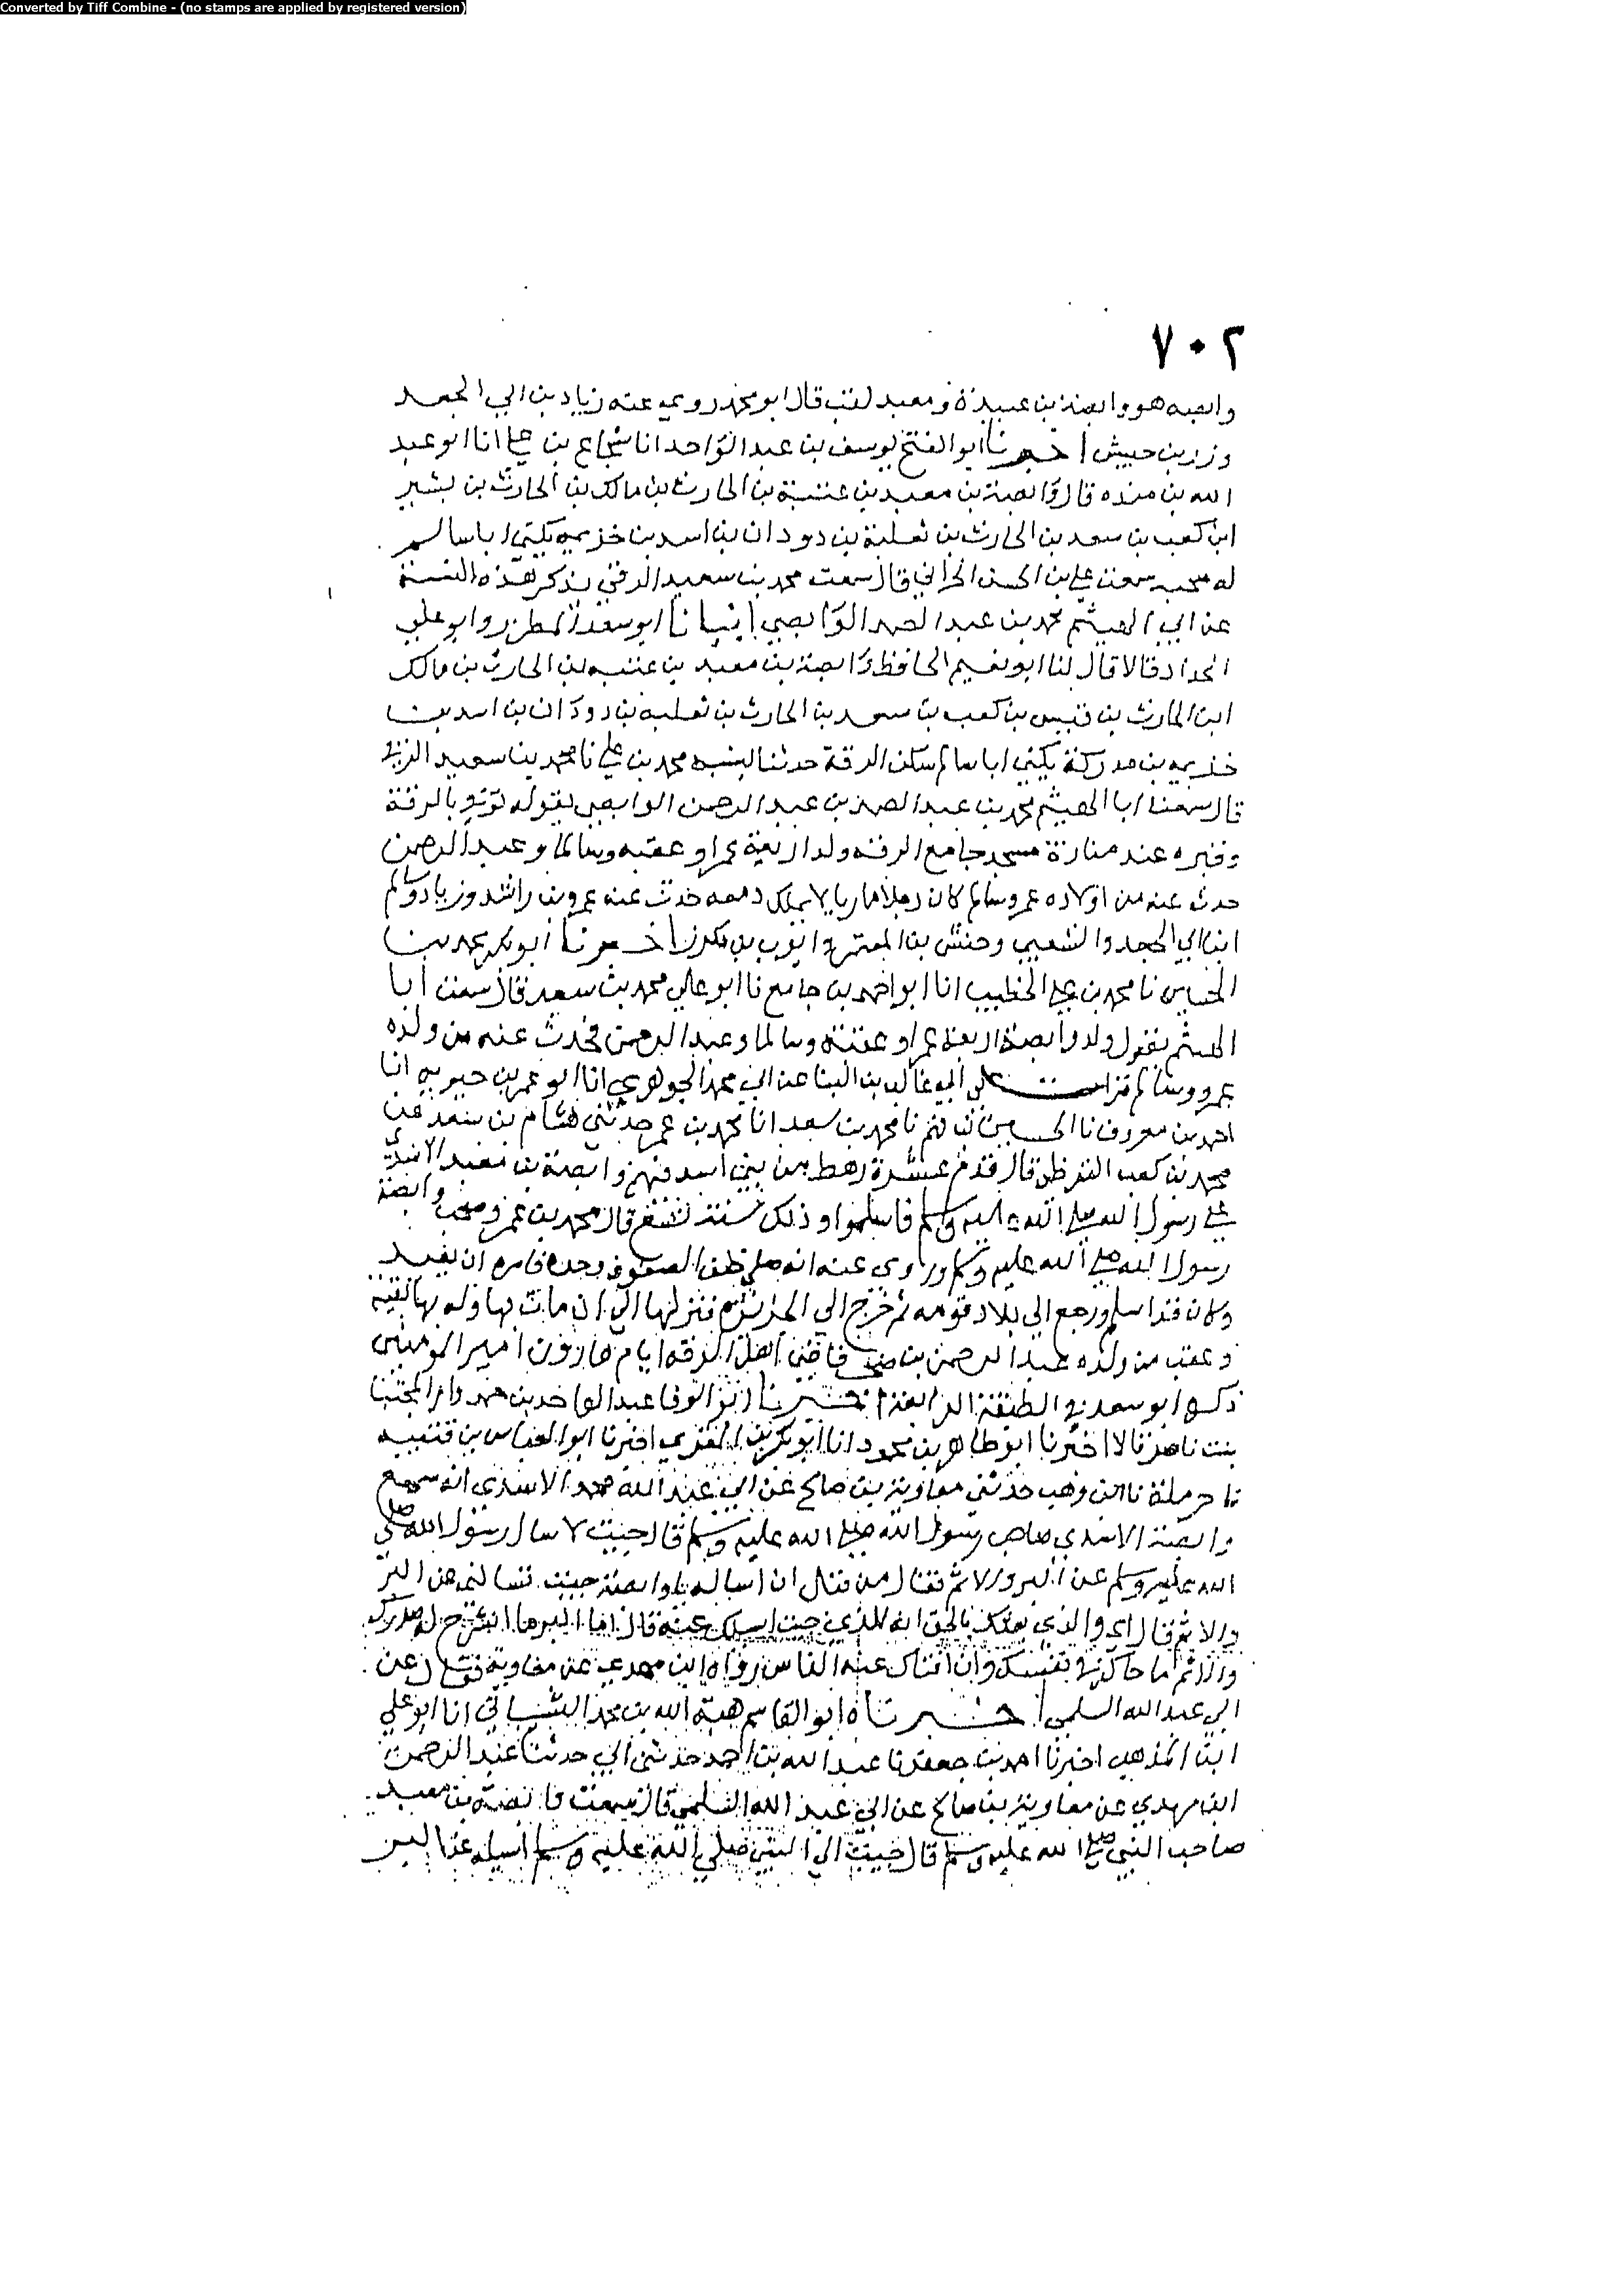 Converted by Tiff Combine - (no stamps are applied by registered version)
٧٠٢
وابصه هو وابصة بن عبيدة ومعبد لقب قال ابو محمد روى عنه زياد بن ابي الجعد
وزر بن حبيش اخبرنا ابو الفتح يوسف بن عبد الواحد انا شجاع بن علي انا ابو عبد
الله بن منده قال وابصة بن معبد بن عتبة بن الحارث بن مالك بن الحارث بن بشير
ابن كعب بن سعد بن الحارث بن ثعلبة بن دودان بن اسد بن خزيمه يكنى ابا سالم
له صحبه سمعت علي بن الحسن الحراني قال سمعت محمد بن سعيد الرقي يذكر هذه النسبة
عن ابي الهيثم محمد بن عبد الصمد الوابصي انبانا ابو سعد المطرز وابو علي
الحداد قالا قال لنا ابو نعيم الحافظ وابصة بن معبد بن عتبه بن الحارث بن مالك
ابن الحارث بن قيس بن كعب بن سعد بن الحارث بن ثعلبه بن دودان بن اسد بن
خزيمه بن مدركة يكنى ابا سالم سكن الرقة حدثنا بنسبه محمد بن علي نا محمد بن سعيد الرقي
قال سمعت ابا الهيثم محمد بن عبد الصمد بن عبد الرحمن الوابصي يقوله توفي بالرقة
وقبره عند منارة مسجد جامع الرقه ولد اربعة عمرا وعقبه وسالما وعبد الرحمن
حدث عنه من اولاده عمرو وسالم كان رجلا قاريا لا يملك دمعه حدث عنه عمرو بن راشد وزياد وسالم
ابنا ابي الجعد والشعبي وحنش بن المعتمر وايوب بن مكرز اخبرنا ابو بكر محمد بن
الحسين نا محمد بن علي الخطيب انا ابو احمد بن جامع نا ابو علي محمد بن سعيد قال سمعت ابا
الهيثم يقول ولد وابصة اربعة عمرا وعقبة وسالما وعبد الرحمن فحدث عنه من ولده
عمرو وسالم قرات على ابي غالب بن البنا عن ابي محمد الجوهري انا ابو عمر بن حيويه انا
احمد بن معروف نا الحسين بن فهم نا محمد بن سعد انا محمد بن عمر حدثني هشام بن سعد عن
محمد بن كعب القرظي قال قدم عشرة رهط من بني اسد فيهم وابصة بن معبد الاسدي
على رسول الله صلى الله عليه وسلم فاسلموا وذلك سنة تسع قال محمد بن عمر وصحب وابصة
رسول الله صلى الله عليه وسلم وروى عنه انه صلى خلف الصفوف وحده فامره ان يعيد
وكان قد اسلم ورجع الى بلاد قومه ثم خرج الى الجزيرة فنزلها الى ان مات بها وله بها بقية
وعقب من ولده عبد الرحمن بن صخر قاضي اهل الرقه ايام هارون امير المومنين
ذكره ابو سعد في الطبقة الرابعة اخبرنا ابو الوفا عبد الواحد بن حمد وام المجتبا
بنت ناصر قالا اخبرنا ابو طاهر بن محمود انا ابو بكر بن المقري اخبرنا ابو العباس بن قتيبه
نا حرملة نا ابن وهب حدثني معاوية بن صالح عن ابي عبد الله محمد الاسدي انه سمع
وابصة الاسدي صاحب رسول الله صلى الله عليه وسلم قال جيت لا سال رسول الله صلى
الله عليه وسلم عن البر والاثم فقال من قبل ان اساله يا وابصة جيت تسالني عن البر
والاثم قال اي والذي بعثك بالحق انه للذي جيت اسلك عنه قال اما البر ما انشرح له صدرك
والاثم ما حاك في نفسك وان افتاك عنه الناس رواه ابن مهدي عن معاوية فقال عن
ابي عبد الله السلمي اخبرناه ابو القاسم هبة الله بن محمد الشيباني انا ابو علي
ابن المذهب اخبرنا احمد بن جعفر نا عبد الله بن احمد حدثني ابي حدثنا عبد الرحمن
ابن مهدي عن معاوية بن صالح عن ابي عبد الله السلمي قال سمعت وابصة بن معبد
صاحب النبي صلى الله عليه وسلم قال جيت الى النبي صلى الله عليه وسلم اسيله عن البر